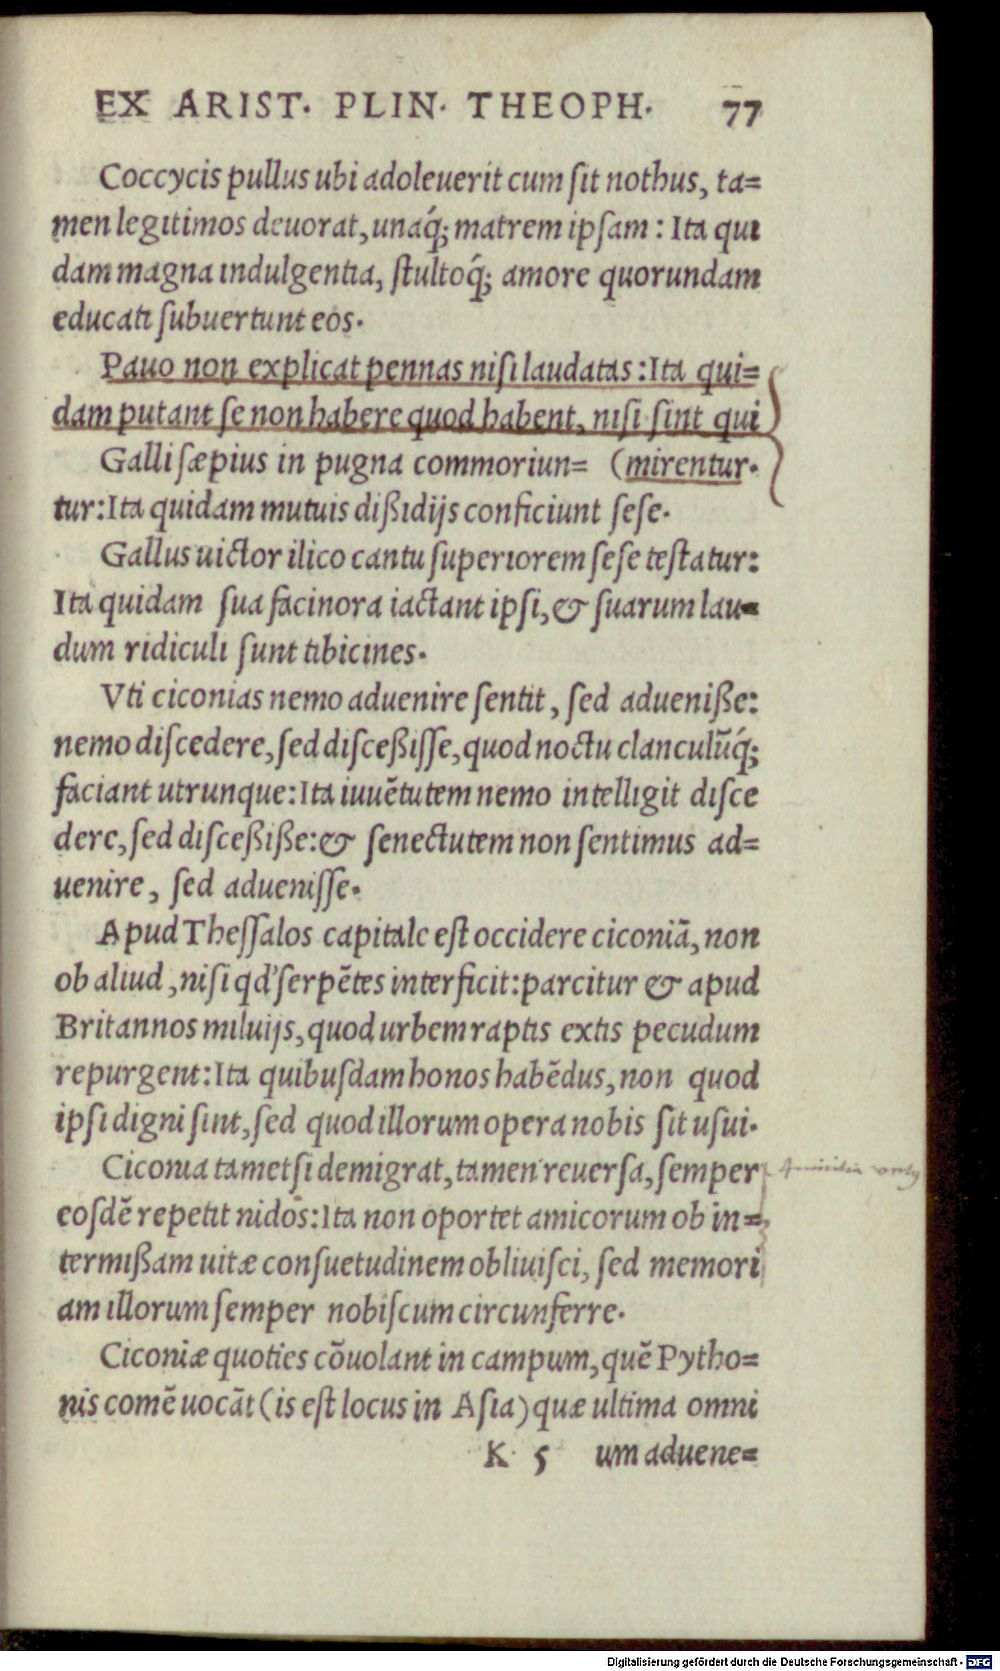 EX ARIST. PLIN. THEOPH. 77
Coccycis pullus ubi adoleuerit cum ſit nothus, ta=
men legitimos deuorat, unaq́; matrem ipſam : Ita qui
dam magna indulgentia, ſtultoq́; amore quorundam
educati ſubuertunt eos.
Pauo non explicat pennas niſi laudatas : Ita qui=
dam putant ſe non habere quod habent, niſi ſint qui
Galli ſæpius in pugna commoriun= (mirentur.
tur: Ita quidam mutuis dißidijs conficiunt ſeſe.
Gallus uictor ilico cantu ſuperiorem ſeſe teſtatur:
Ita quidam ſua facinora iactant ipſi, & ſuarum lau=
dum ridiculi ſunt tibicines.
Vti ciconias nemo aduenire ſentit, ſed adueniße:
nemo diſcedere, ſed diſceßiſſe, quod noctu clanculũq́;
faciant utrunque: Ita iuuẽtutem nemo intelligit diſce
dere, ſed diſceßiße: & ſenectutem non ſentimus ad=
uenire, ſed adueniſſe.
Apud Theſſalos capitale eſt occidere ciconiã, non
ob aliud, niſi qd' ſerpẽtes interficit: parcitur & apud
Britannos miluijs, quod urbem raptis extis pecudum
repurgent: Ita quibuſdam honos habẽdus, non quod
ipſi digni ſint, ſed quod illorum opera nobis ſit uſui.
Ciconia tametſi demigrat, tamen reuerſa, ſemper
eoſdẽ repetit nidos: Ita non oportet amicorum ob in=
termißam uitæ conſuetudinem obliuiſci, ſed memori
am illorum ſemper nobiſcum circunferre.
Ciconiæ quoties cõuolant in campum, quẽ Pytho=
nis comẽ uocãt (is eſt locus in Aſia) quæ ultima omni
K 5 um aduene=
Digitalisierung gefördert durch die Deutsche Forschungsgemeinschaft - DFG